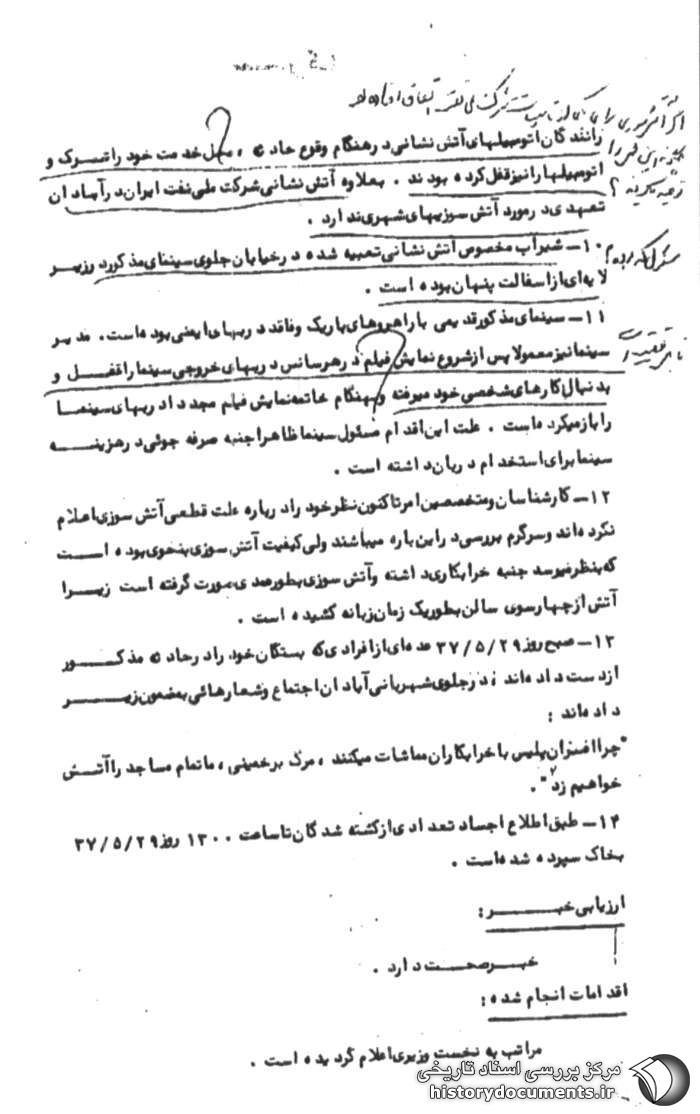 رانندگان اتومبیلهای آتش نشانی در هنگام وقوع حادثه ، محل خدمت خود را ترک و
اتومبیلها را نیز قفل کرده بودند . بعلاوه آتش نشانی شرکت ملی نفت ایران در آبادان
تعهدی در مورد آتش سوزیهای شهری ندارد .
۱۰ـ شیر آب مخصوص آتش نشانی تعبیه شده در خیابان جلوی سینمای مذکور در زیر
لایه ای از اسفالت پنهان بوده است .
مسئول که بوده ؟
۱۱ـ سینمای مذکور قدیمی با راهروهای باریک و فاقد دربهای ایمنی بوده است. مدیر
سینما نیز معمولا پس از شروع نمایش فیلم در هر سانس دربهای خروجی سینما را قفل و
بدنبال کارهای شخصی خود میرفته و بهنگام خاتمه نمایش فیلم مجددا دربهای سینما
را باز میکرده است . علت این اقدام مسئول سینما ظاهرا جنبه صرفه جوئی در هزینه
سینما برای استخدام دربان داشته است .
۱۲ـ کارشناسان و متخصصین امر تاکنون نظر خود را درباره علت قطعی آتش سوزی اعلام
نکرده اند و سرگرم بررسی در این باره میباشند ولی کیفیت آتش سوزی بنحوی بوده است
که بنظر میرسد جنبه خرابکاری داشته و آتش سوزی بطور عمدی صورت گرفته است زیرا
آتش از چهار سوی سالن بطور یک زمان زبانه کشیده است .
۱۳ـ صبح روز ۳۷/۵/۲۹ عده ای از افرادی که بستگان خود را در حادثه مذکور
از دست داده اند ، در جلوی شهربانی آبادان اجتماع و شعارهائی بمضمون زیر
داده اند :
"چرا افسران پلیس با خرابکاران مماشات میکنند ، مرگ بر خمینی ، ما تمام مساجد را آتش
خواهیم زد" .
۱۴ـ طبق اطلاع اجساد تعدادی از کشته شدگان تا ساعت ۱۳۰۰ روز ۳۷/۵/۲۹
بخاک سپرده شده است .
ارزیابی خبر :
خبر صحت دارد .
اقدامات انجام شده :
مراتب به نخست وزیری اعلام گردیده است .
مرکز بررسی اسناد تاریخی
historydocuments.ir